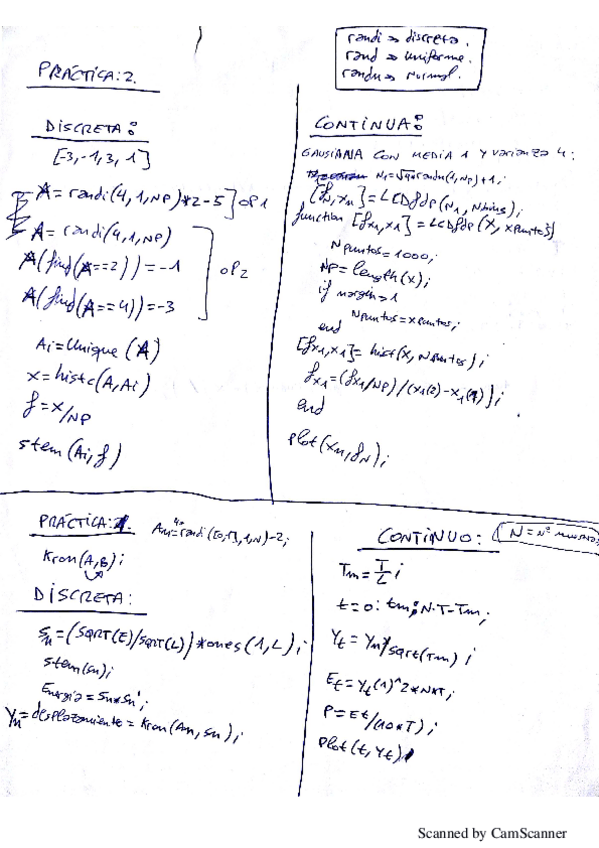 randi => discreta.
rand => uniforme.
randn => Normal.
PRÁCTICA: 2.
DISCRETA:
[-3,-1,3,1]
A = randi(4,1,NP)*2-5] OP1
A = randi(4,1,NP)
A(find(A==2))=-1
A(find(A==4))=-3
OP2
Ai=Unique(A)
x=histc(A,Ai)
f=x/NP
stem(Ai,f)
CONTINUA:
GAUSIANA CON MEDIA 1 Y varianza 4:
N1=√4*randn(1,NP)+1;
[fN,xN]=LCDfdp(N1,Nbins);
function [fx1,x1]=LCDfdp(X,xpuntos)
Npuntos=1000;
NP=length(x);
if nargin>1
Npuntos=xpuntos;
end
[fx1,x1]=hist(X,Npuntos);
fx1=(fx1/NP)/(x1(2)-x1(1));
end
plot(xN,fN);
PRÁCTICA: 1.
An=4*randi([0,1],1,N)-2;
Kron(A,B);
DISCRETA:
sn=(SQRT(E)/SQRT(L))*ones(1,L);
stem(sn);
Energía=Sn*Sn';
Yn=desplazamiento=Kron(An,sn);
CONTINUO:
N=nº muestras
Tm=T/L;
t=0:tm:N·T-Tm;
Yt=Yn/sqrt(Tm);
Et=Yt(1)^2*N*T;
P=Et/(10*T);
plot(t,Yt)
Scanned by CamScanner